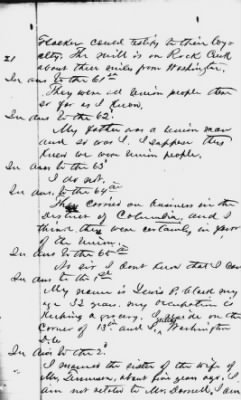 Hooker could testify to their loy-
alty. The mill is on Rock Creek
21 about three miles from Washington.
In Ans to the 61st
They were all Union people then
so far as I know.
In Ans to the 62d
My Father was a Union man
and so was I. I suppose they
knew we were Union people.
In Ans to the 63d
I do not.
In Ans to the 64th
They carried on business in the
District of Columbia, and I
think they were certainly in favor
of the Union.
In Ans to the 65th
No sir I dont know that I can
In Ans to the 1st
My name is Lewis P. Clark my
age 32 years. my occupation is
Keeping a grocery. I reside on the
Corner of 13th and Washington
D.C.
In Ans to the 2d
I married the sister of the wife of
Mr. about five years ago. I
am not related to Mrs. I am